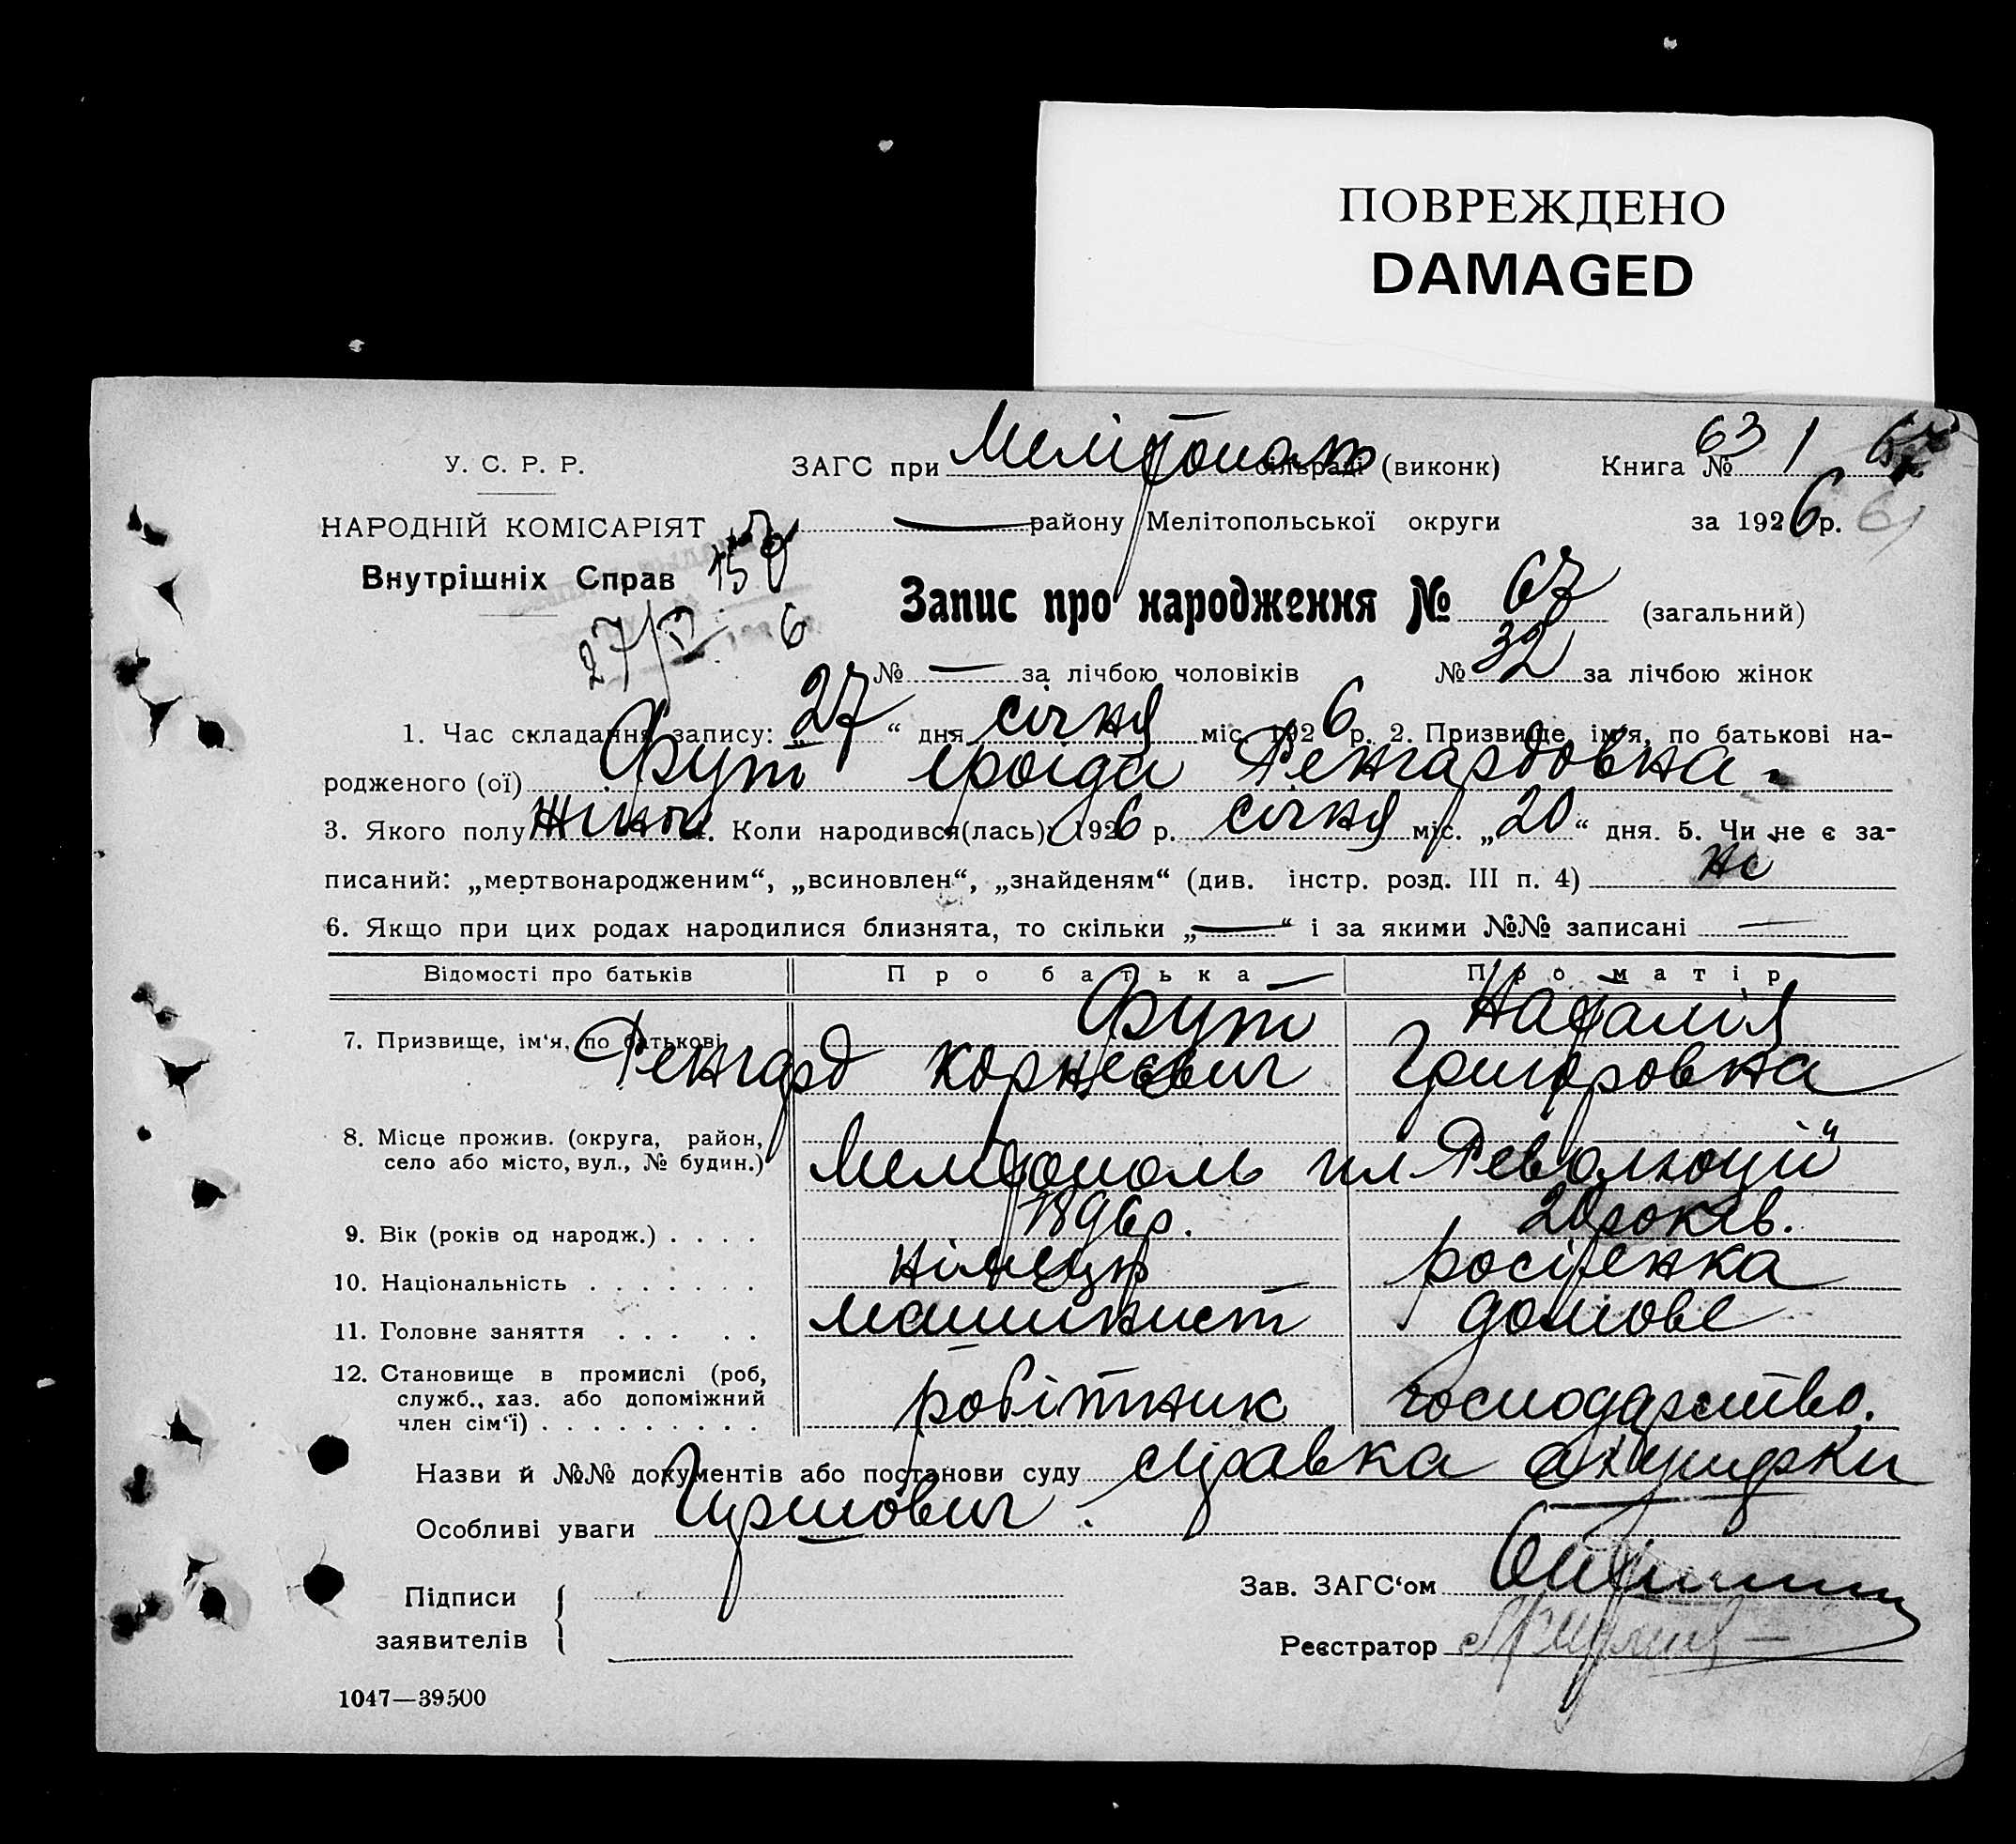 ПОВРЕЖДЕНО
DAMAGED
У. С. Р. Р. ЗАГС при сільраді (виконк) Книга № 63 1
НАРОДНІЙ КОМІСАРІЯТ району Мелітопольської округи за 1926 р.
Внутрішніх Справ
Запис про народження № 67 (загальний)
27/
6
№ — за лічбою чоловіків № 32 за лічбою жінок
1. Час складання запису: „27“ дня січня міс. 1926 р. 2. Призвище, ім'я, по батькові на-
родженого (ої) Фут Іроіда Ренгардовна
3. Якого полу жіноч. 4. Коли народився(лась): 1926 р. січня міс. „20“ дня. 5. Чи не є за-
писаний: „мертвонародженим“, „всиновлен“, „знайденям“ (див. інстр. розд. III п. 4) не
6. Якщо при цих родах народилися близнята, то скільки „—“ і за якими №№ записані —
Відомості про батьків Про батька Про матір
7. Призвище, ім'я, по батькові Фут Наталія
Ренгард Корнєєвич Григоровна
8. Місце прожив. (округа, район,
село або місто, вул., № будин.) Мелітополь пл Революції
9. Вік (років од народж.) . . . . 1896р. 20 років.
10. Національність . . . . . . . німець росіянка
11. Головне заняття . . . . . машиніст домове
12. Становище в промислі (роб,
служб., хаз. або допоміжний
член сім'ї) . . . . . . . . . робітник господарство.
Назви й №№ документів або постанови суду справка акушерки
Особливі уваги Гиршович.
Підписи
заявителів
Зав. ЗАГС'ом
Реєстратор
1047—39500